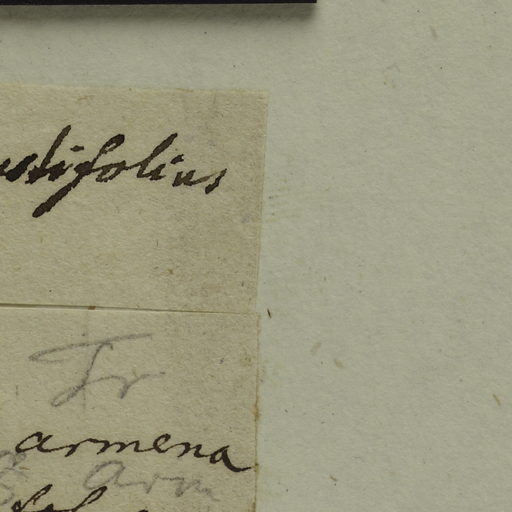 ustifolius
Tr
armena
Arm